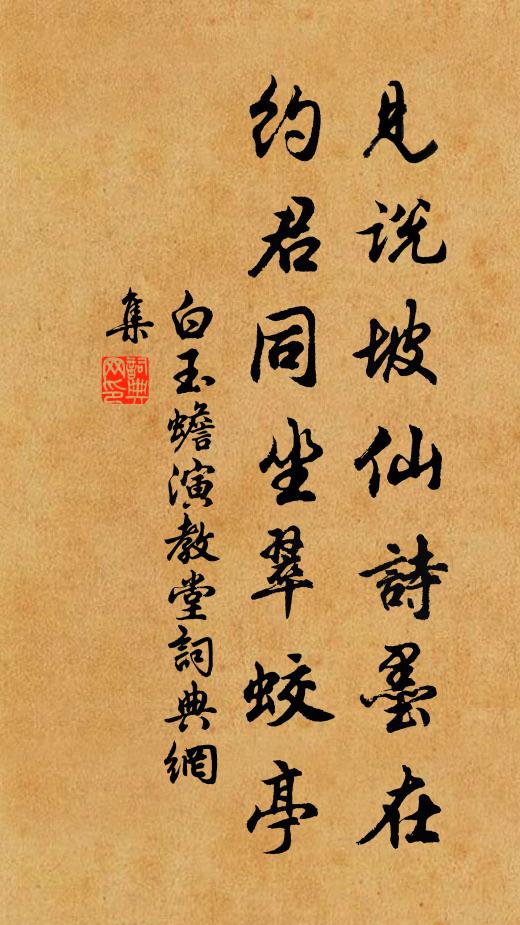 見说坡仙詩墨在
約君同坐翠蛟亭
白玉蟾演教堂詞典網
集
詞典
网印